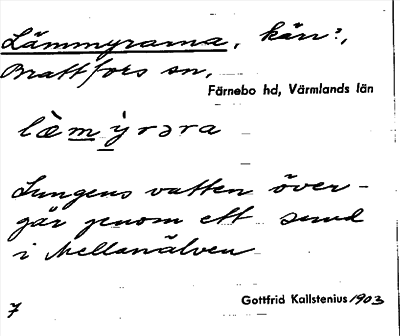 Lämmyrarna, kän?,
Brattfors sn,
Färnebo hd, Värmlands län
lȁ̀emỳrəra
Lungens vatten över-
går genom ett sund
i Mellanälven
7
Gottfrid Kallstenius 1903